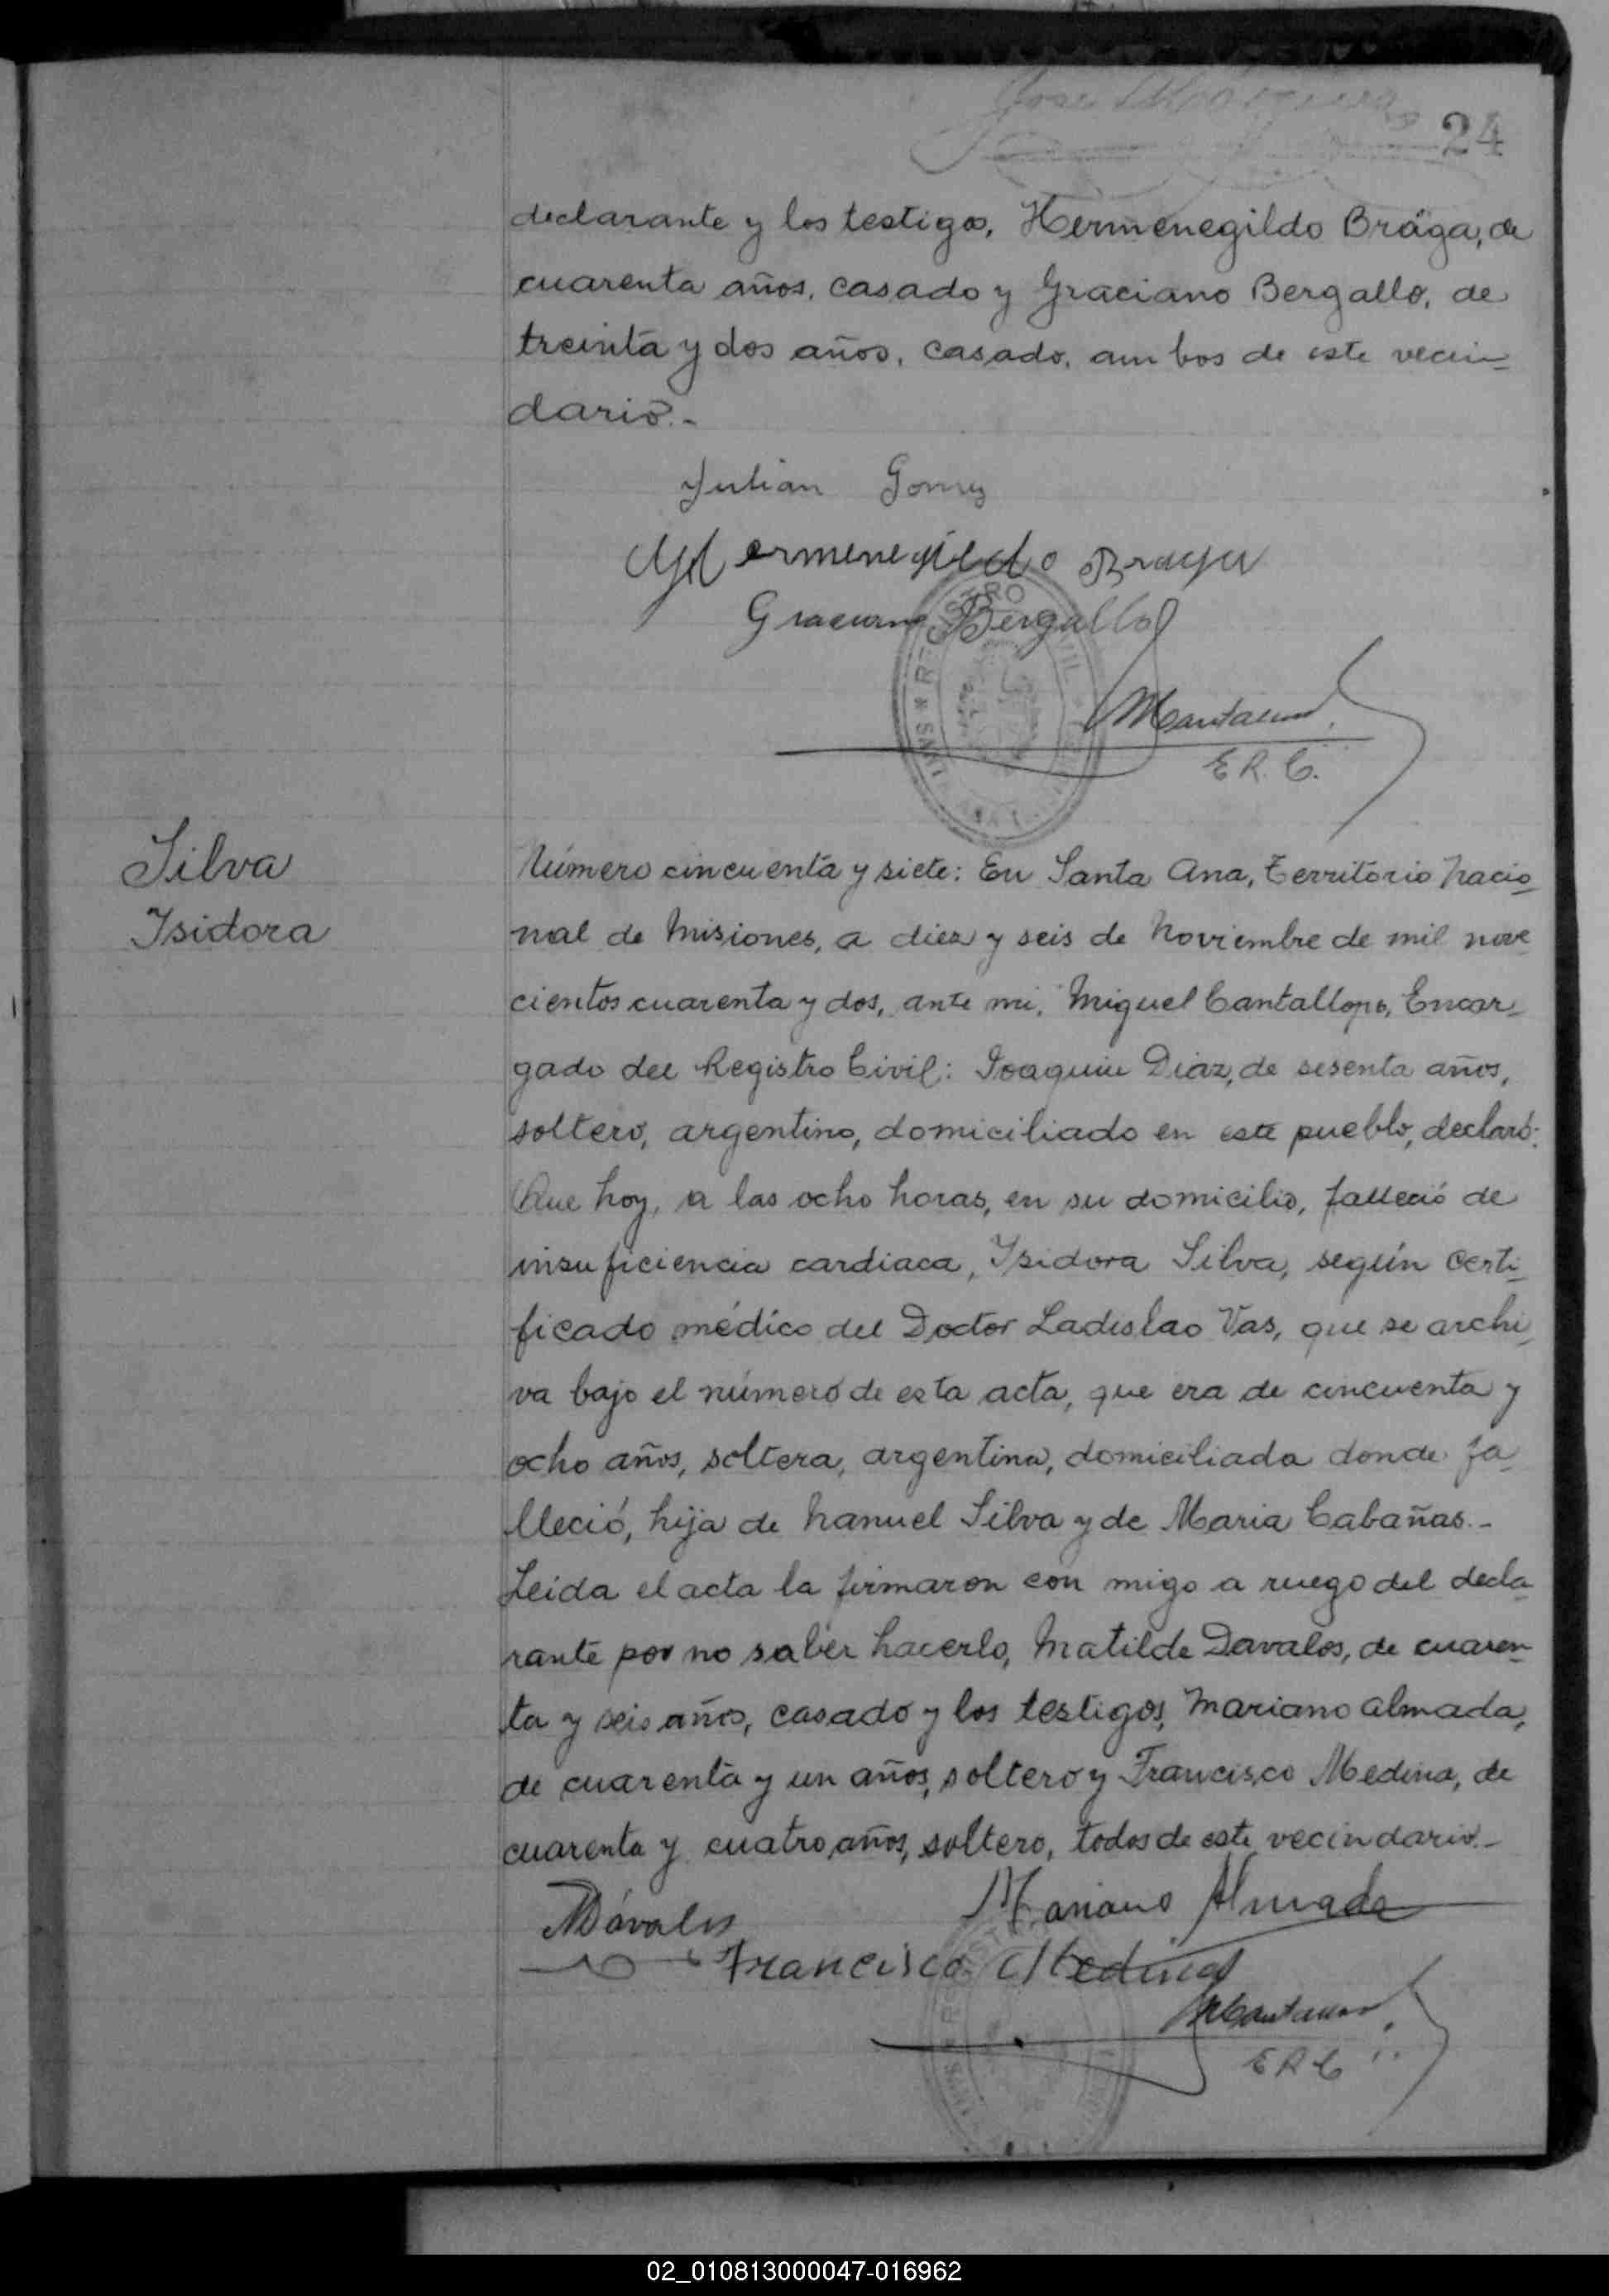 24
declarante y los testigos, Hermenegildo Braga, de
cuarenta años, casado y Graciano Bergallo, de
treinta y dos años, casado, ambos de este vecin-
dario.-
Julian Gomez
Hermenegildo Braga
Graciano Bergallo
REGISTRO CIVIL
E R. C.
Silva
Isidora
Número cincuenta y siete: En Santa Ana, Territorio Nacio-
nal de Misiones, a diez y seis de Noviembre de mil nove
cientos cuarenta y dos, ante mi, Miguel Cantallops, Encar-
gado del Registro Civil: Joaquin Diaz, de sesenta años,
soltero, argentino, domiciliado en este pueblo, declaró:
Que hoy, a las ocho horas, en su domicilio, falleció de
insuficiencia cardiaca, Isidora Silva, según certi-
ficado médico del Doctor Ladislao Vas, que se archi-
va bajo el número de esta acta, que era de cincuenta y
ocho años, soltera, argentina, domiciliada donde fa-
lleció, hija de Manuel Silva y de Maria Cabañas.-
Leida el acta la firmaron con migo a ruego del decla-
rante por no saber hacerlo, Matilde Davalos, de cuaren-
ta y seis años, casado y los testigos, Mariano Almada,
de cuarenta y un años, soltero y Francisco Medina, de
cuarenta y cuatro años, soltero, todos de este vecindario.-
MDávalos
Mariano Almada
Francisco Medina
E R C
02_010813000047-016962